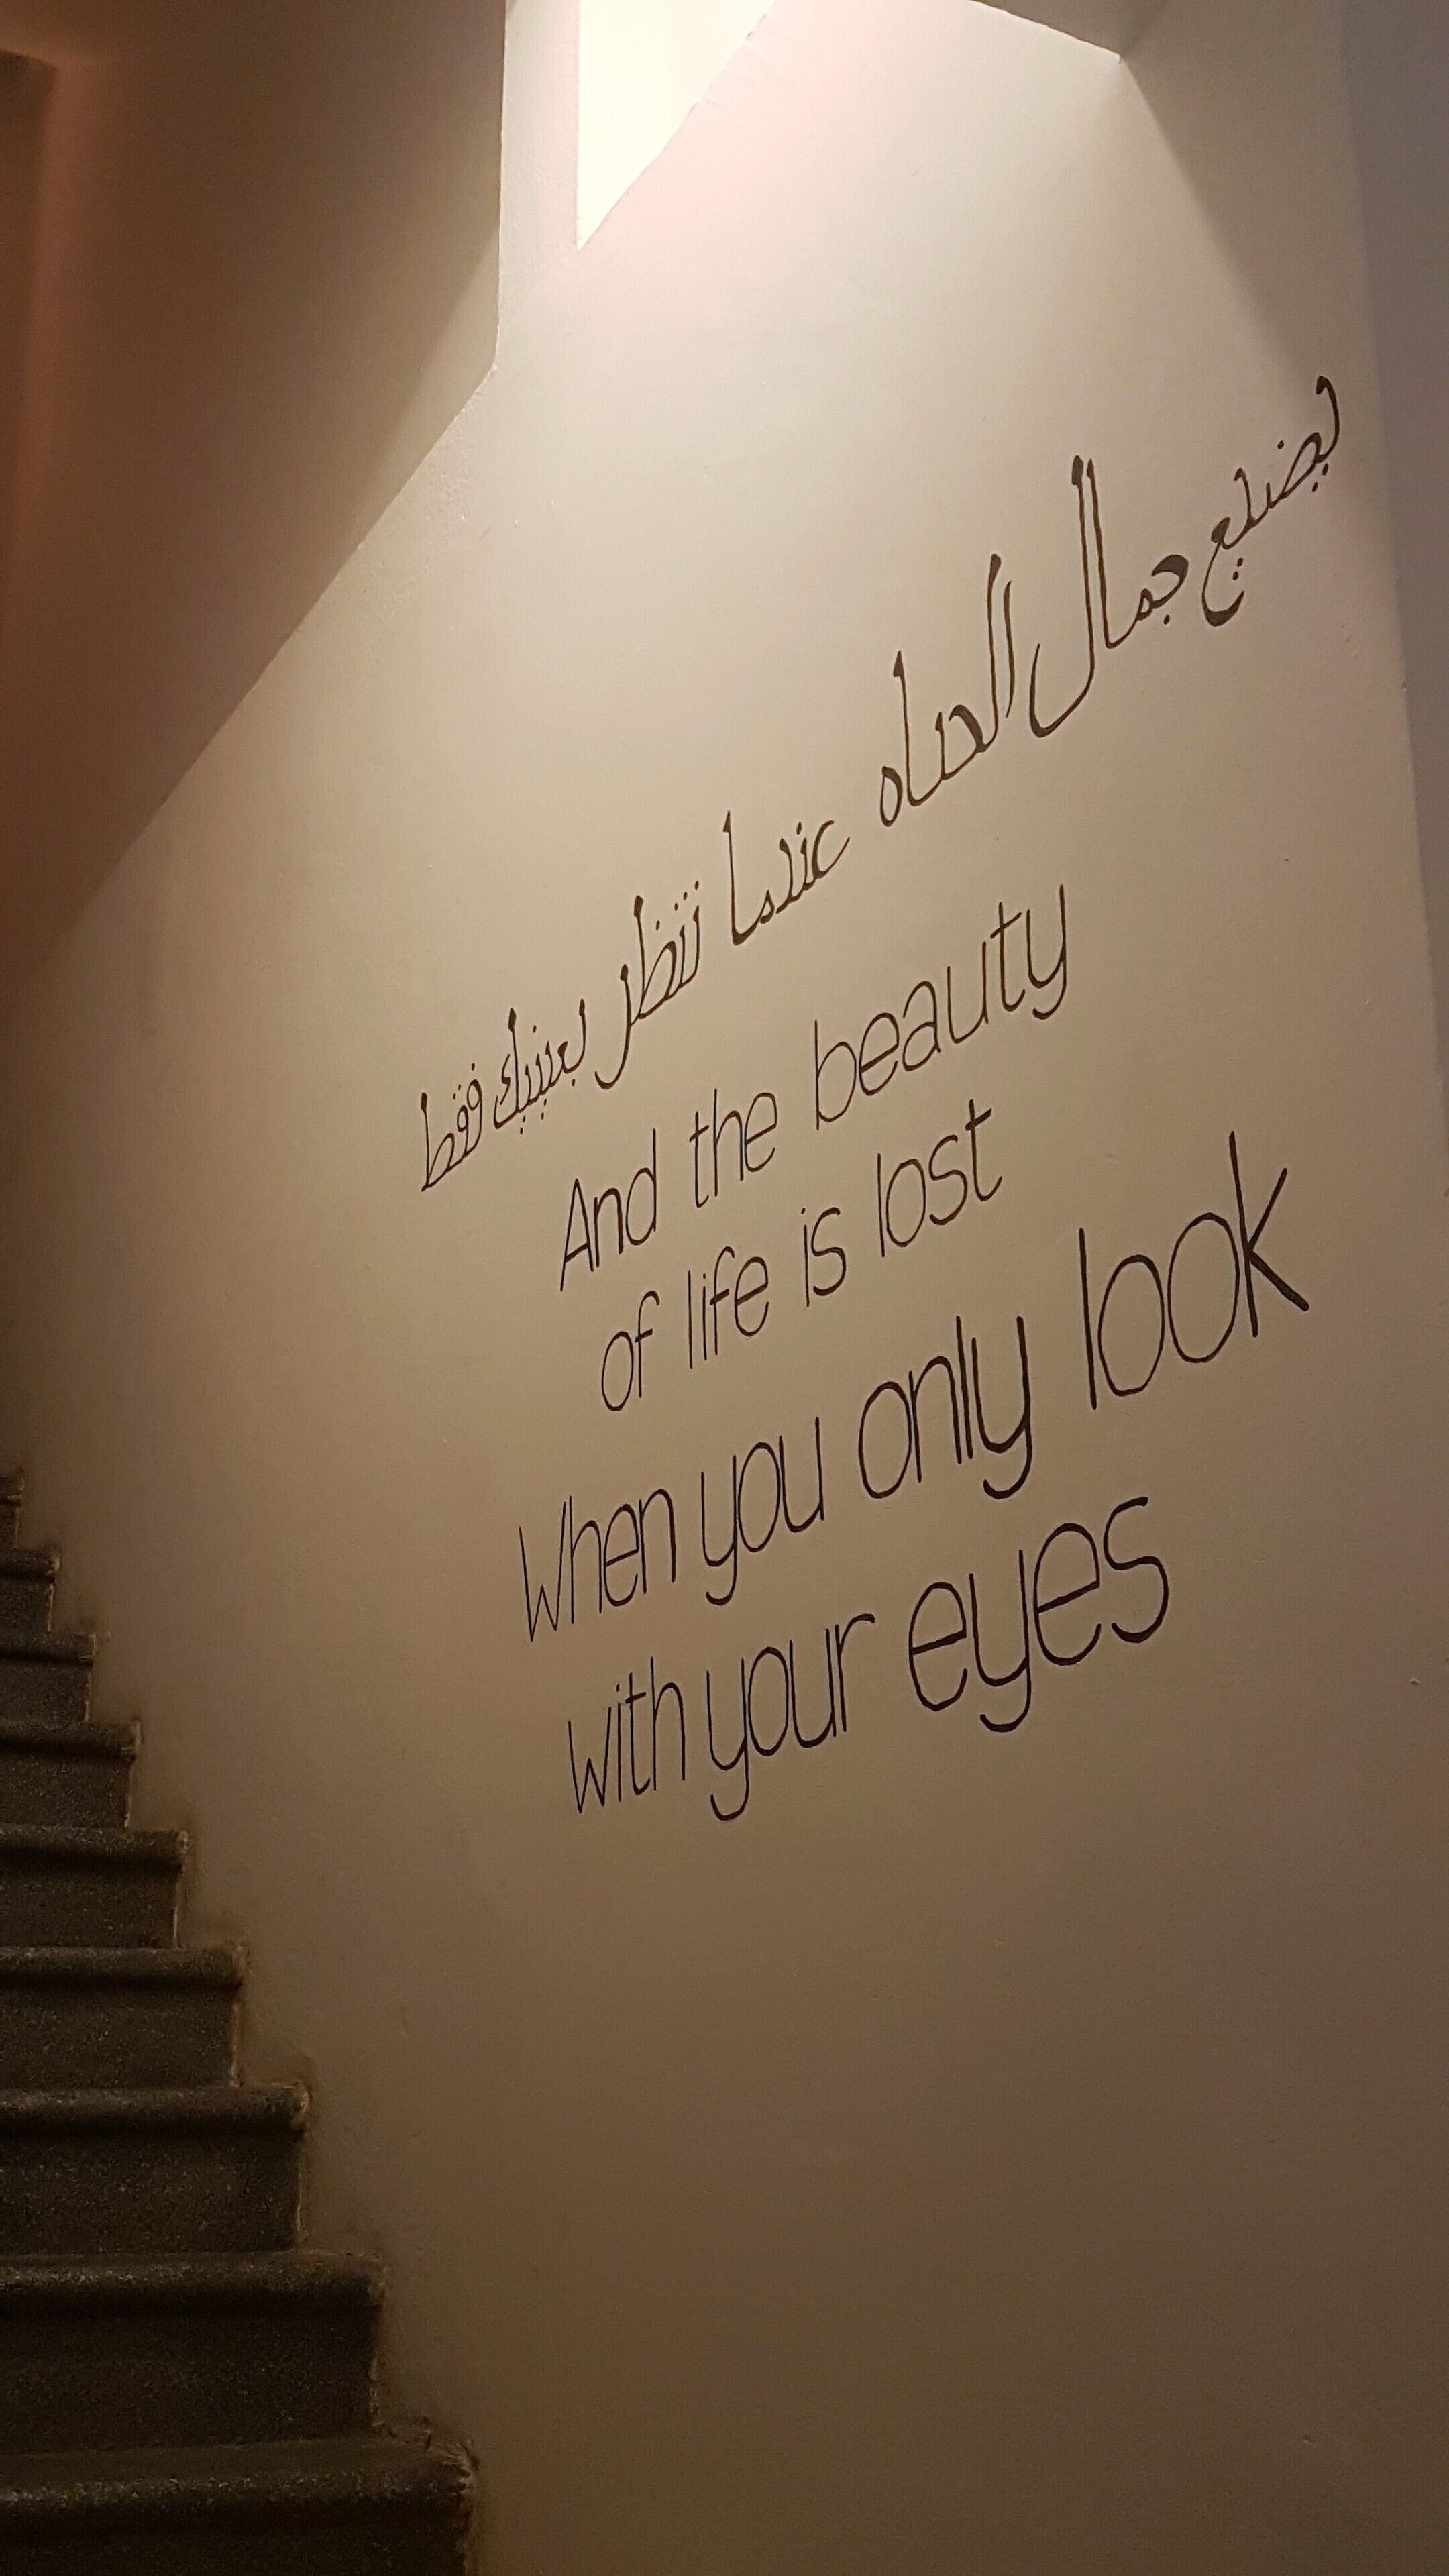 يضيع جمال الحياه عندما تنظر بعينيك فقط
And the beauty
of life is lost
When you only look
with your eyes